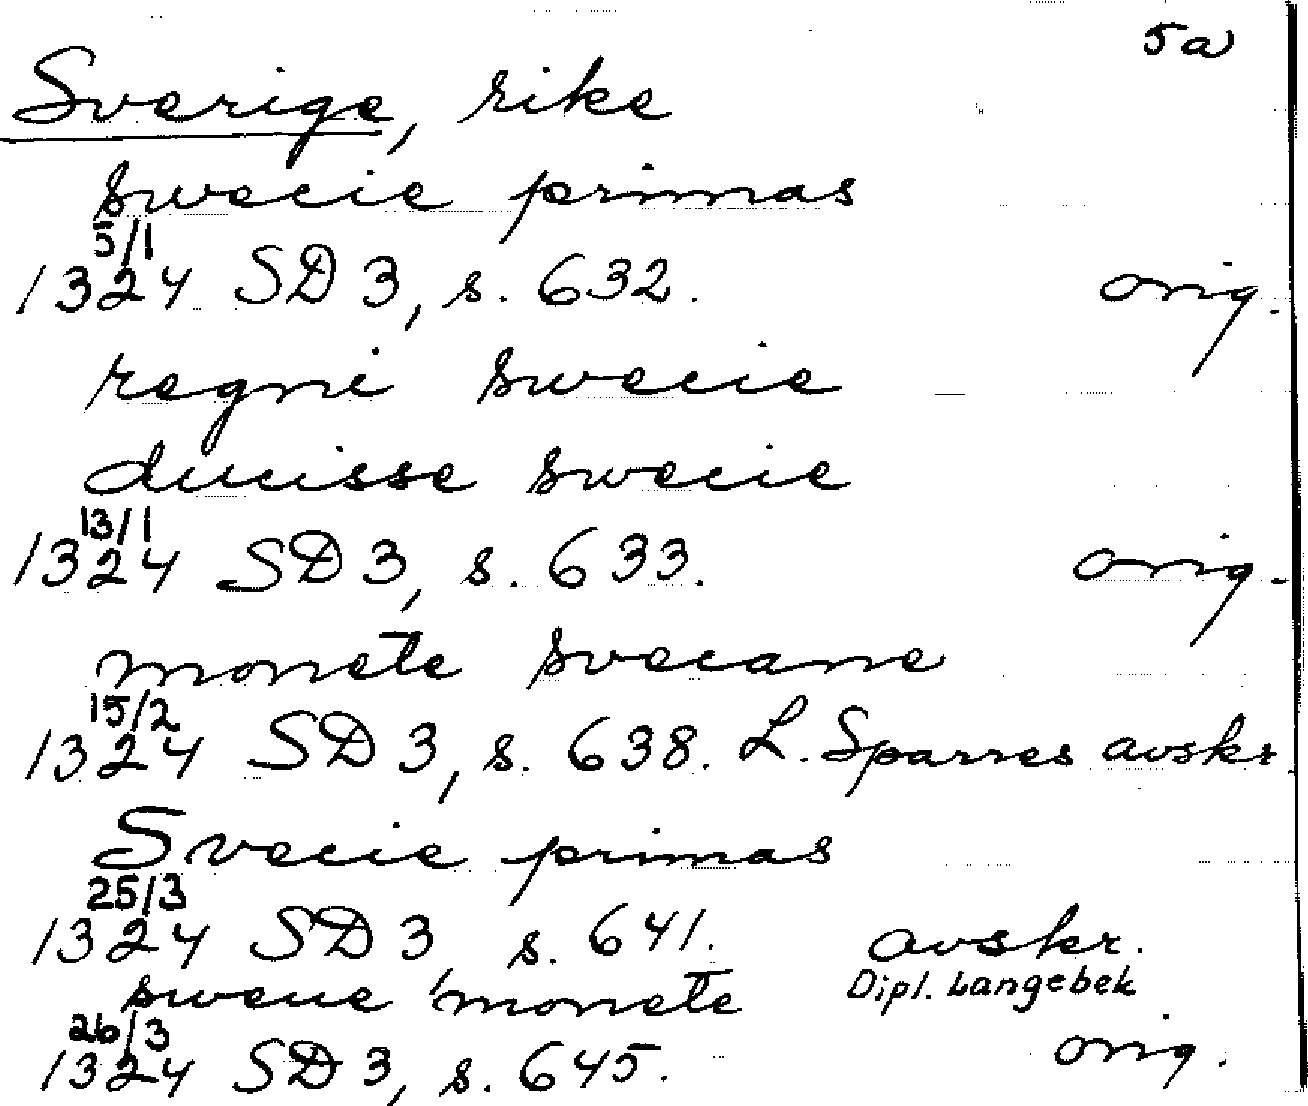 5a
Sverige, rike
swecie primas
5/1
1324 SD 3, s. 632. orig.
regni swecie
ducisse swecie
13/1
1324 SD 3, s. 633. orig.
monete svecane
15/2
1324 SD 3, s. 638. L. Sparres avskr.
Svecie primas
25/3
1324 SD 3, s. 641. avskr.
Dipl. Langebek
swene monete
26/3
1324 SD 3, s. 645. orig.